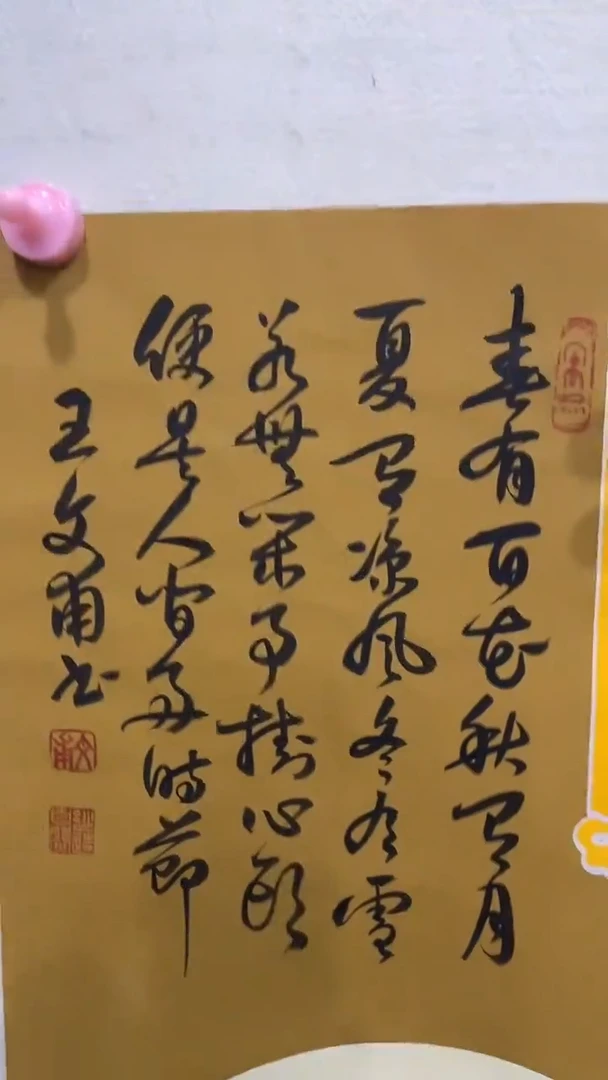 春有百花秋有月
夏有凉风冬有雪
若無闲事掛心頭
便是人间好時節
王文甫书